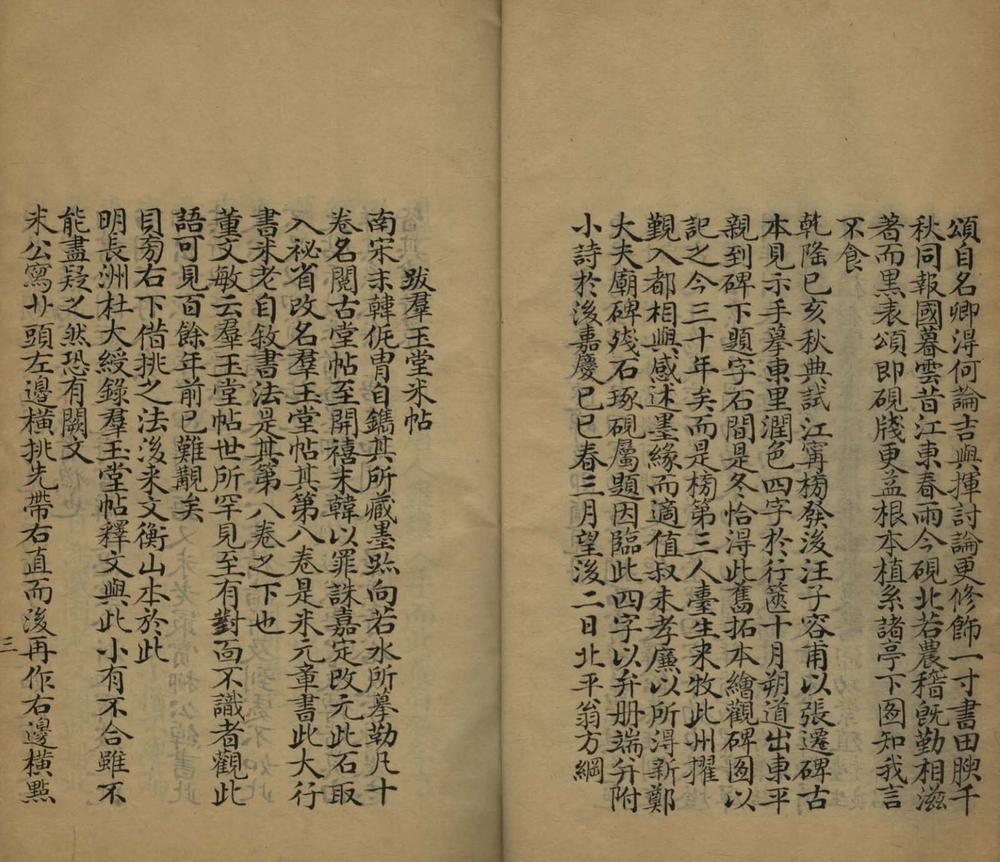 頌自名卿得何論吉與揮討論更修飾一寸書田腴千
秋同報國暮雲昔江東春雨今硯北若農稽既勤相滋
著而黑表頌即硯牋更益根本植系諸亭下图知我言
不食
乾隆己亥秋典試江寧榜發後汪子容甫以張遷碑古
本見示手摹東里潤色四字於行篋十月朔道出東平
親到碑下題字石間是冬恰得此舊拓本繪觀碑图以
記之今三十年矣而是榜第三人臺生来牧此州擢
覲入都相與感述墨緣而適值叔未孝廉以所得新鄭
大夫廟碑殘石琢硯屬題因臨此四字以弁册端幷附
小詩於後嘉慶己巳春三月望後二日北平翁方綱
跋羣玉堂米帖
南宋末韓侂冑自鐫其所藏墨跡向若水所摹勒凡十
卷名閱古堂帖至開禧末韓以罪誅嘉定改元此石取
入祕省改名羣玉堂帖其第八卷是米元章書此大行
書米老自敘書法是其第八卷之下也
董文敏云羣玉堂帖世所罕見至有對面不識者觀此
語可見百餘年前已難覯矣
目旁右下借挑之法後来文衡山本於此
明長洲杜大綬錄羣玉堂帖釋文與此小有不合雖不
能盡疑之然恐有闕文
米公寫廾頭左邊橫挑先帶右直而後再作右邊橫點
三